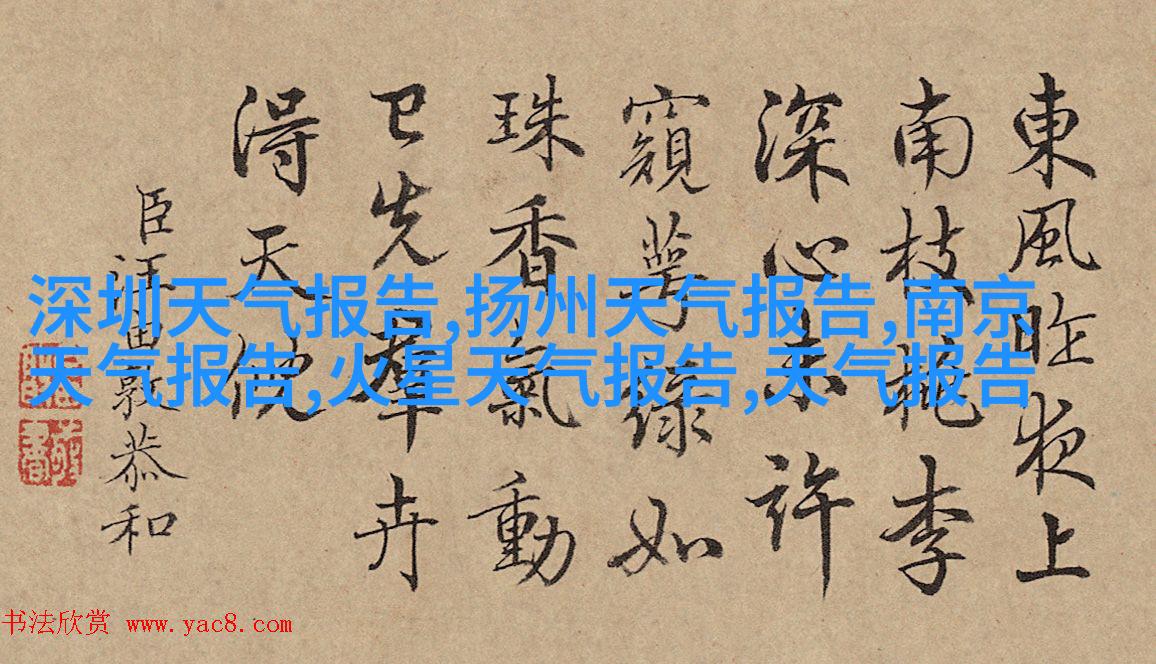 東風昨夜上
南枝桃李
深心未許
窺萼綠如
珠香氣動
已先羣卉
得天
臣汪由敦恭和
深圳天气报告,扬州天气报告,南京
天气报告,火星天气报告,天气报告
书法欣赏 www.yac8.com